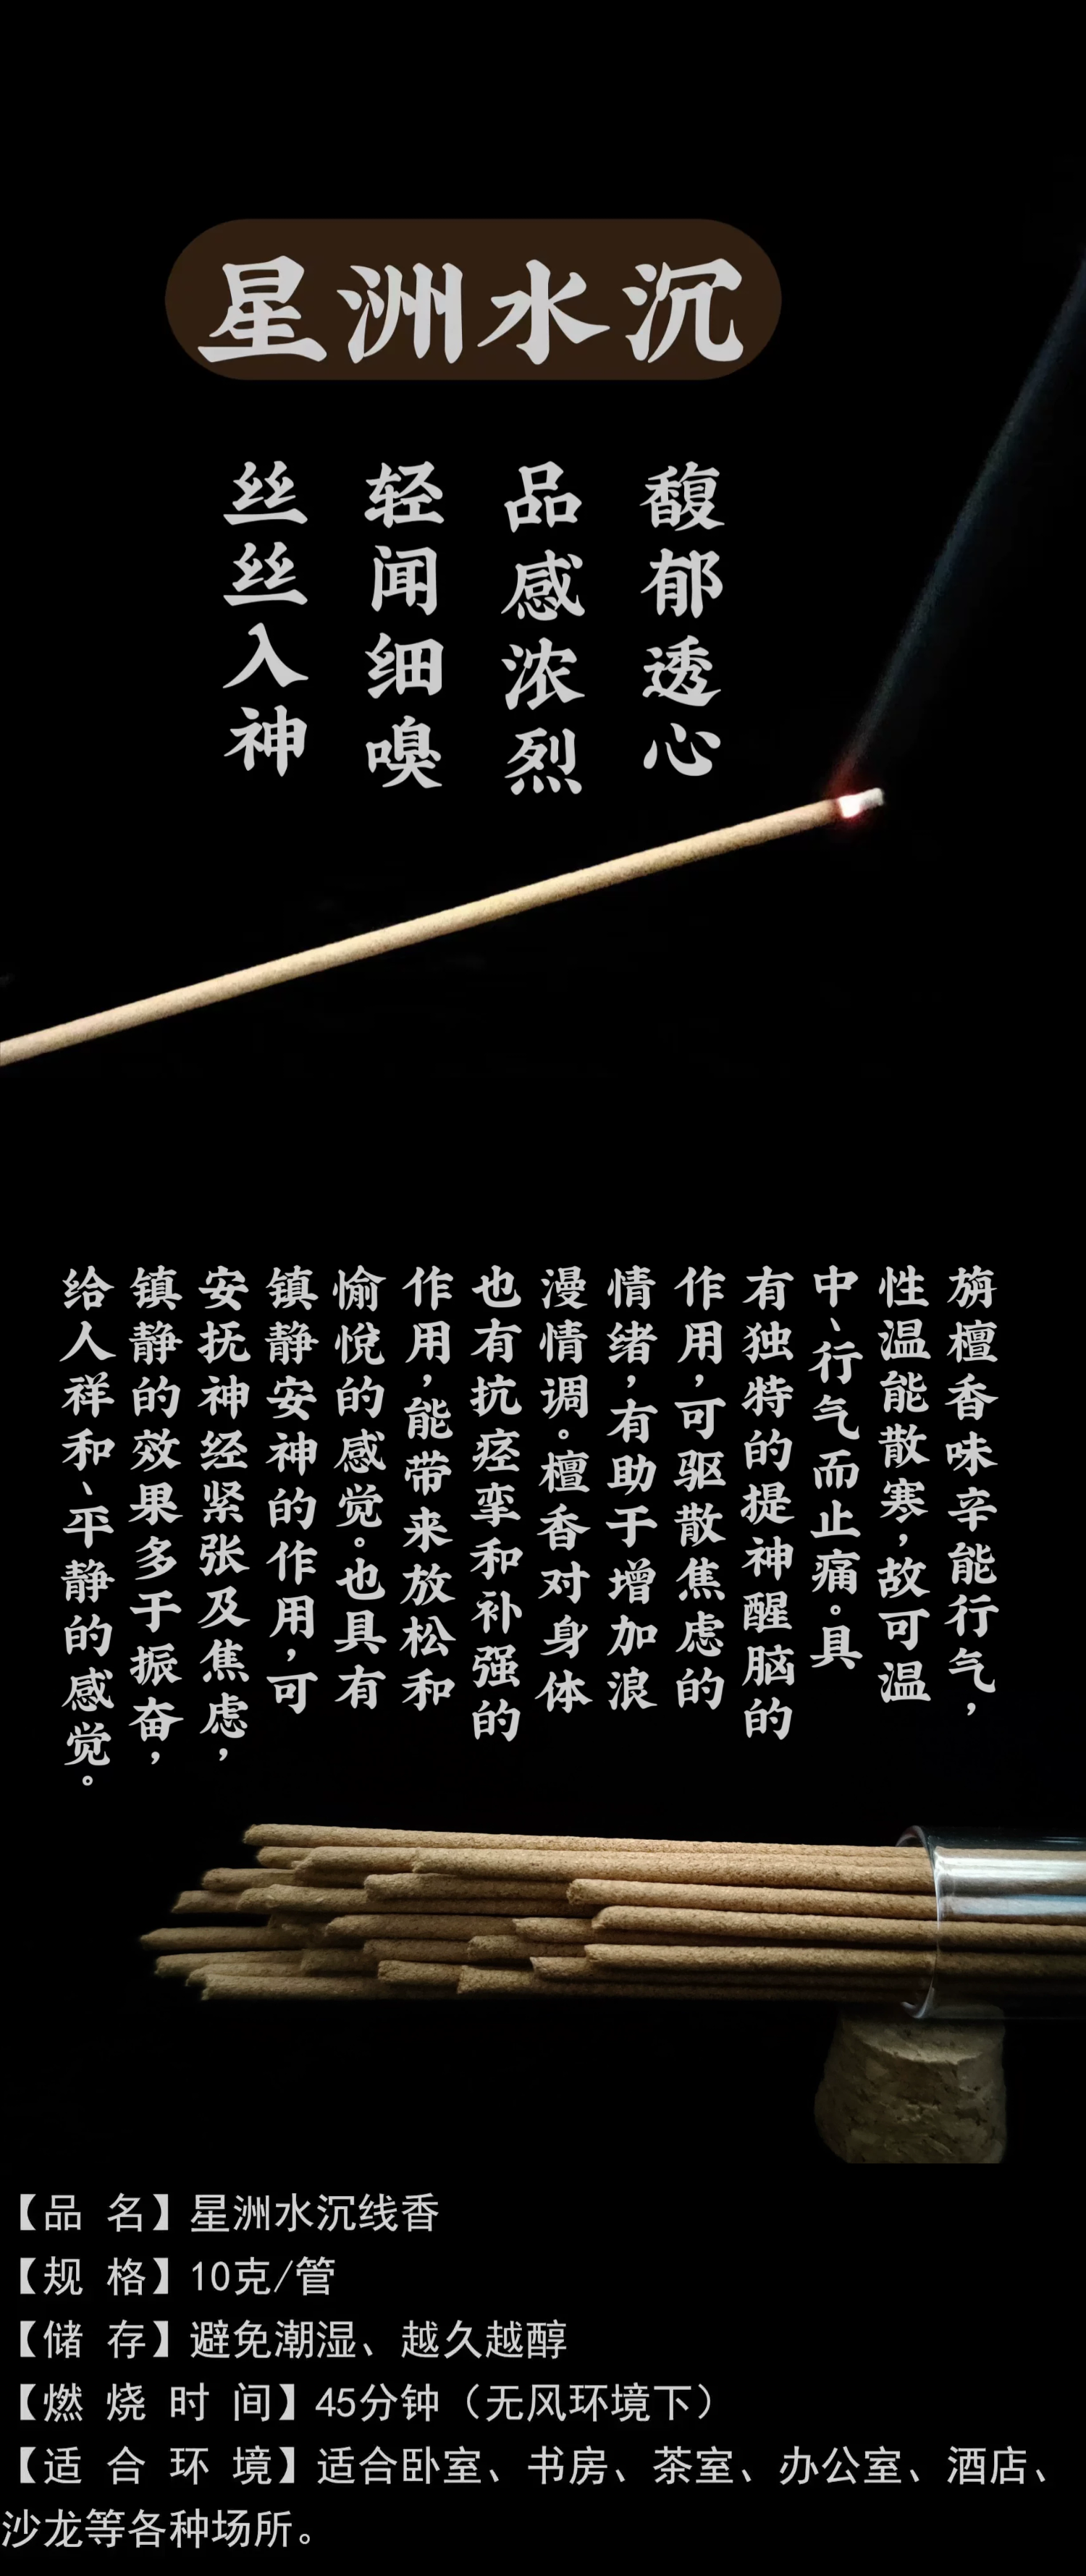 星洲水沉
馥郁透心
品感浓烈
轻闻细嗅
丝丝入神
旃檀香味辛能行气，
性温能散寒，故可温
中、行气而止痛。具
有独特的提神醒脑的
作用，可驱散焦虑的
情绪，有助于增加浪
漫情调。檀香对身体
也有抗痉挛和补强的
作用，能带来放松和
愉悦的感觉。也具有
镇静安神的作用，可
安抚神经紧张及焦虑，
镇静的效果多于振奋，
给人祥和、平静的感觉。
【品 名】星洲水沉线香
【规 格】10克/管
【储 存】避免潮湿、越久越醇
【燃 烧 时 间】45分钟（无风环境下）
【适 合 环 境】适合卧室、书房、茶室、办公室、酒店、
沙龙等各种场所。